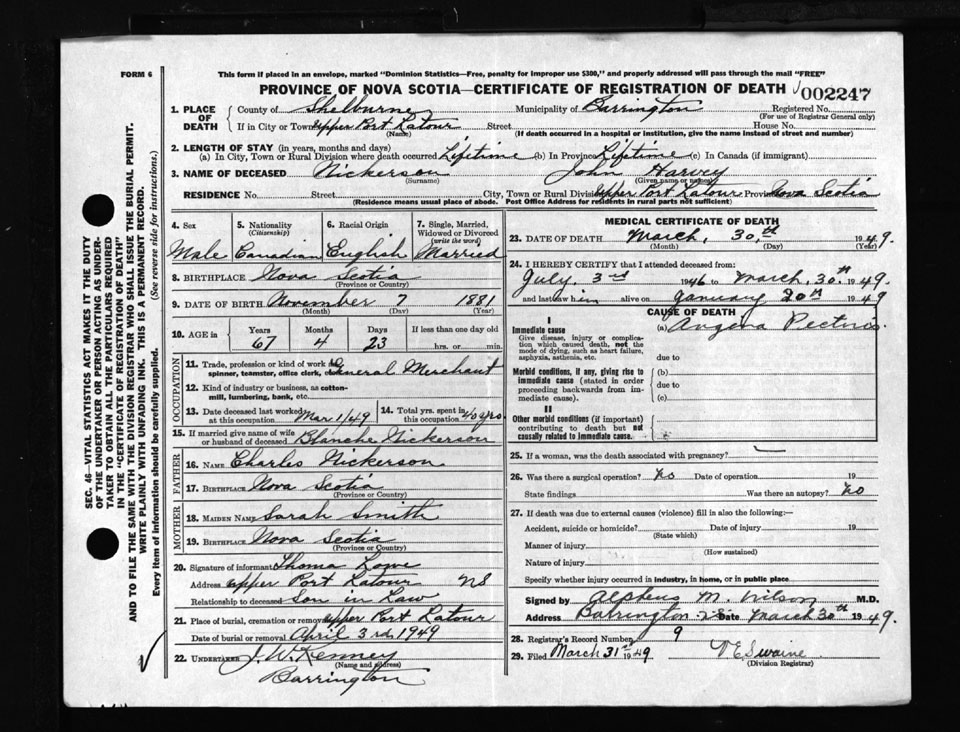 FORM 6
This form if placed in an envelope, marked "Dominion Statistics—Free, penalty for improper use $300," and properly addressed will pass through the mail "FREE"
PROVINCE OF NOVA SCOTIA—CERTIFICATE OF REGISTRATION OF DEATH 002247
1. PLACE OF DEATH County of Shelburne Municipality of Barrington Registered No.
(For use of Registrar General only)
If in City or Town Upper Port Latour Street House No.
(Name) (If death occurred in a hospital or institution, give the name instead of street and number)
2. LENGTH OF STAY (in years, months and days)
(a) In City, Town or Rural Division where death occurred Lifetime (b) In Province Lifetime (c) In Canada (if immigrant)
3. NAME OF DECEASED Nickerson John Harvey
(Surname) (Given name or names)
RESIDENCE No. Street City, Town or Rural Division Upper Port Latour Province Nova Scotia
(Residence means usual place of abode. Post Office Address for residents in rural parts not sufficient)
4. Sex 5. Nationality (Citizenship) 6. Racial Origin 7. Single, Married, Widowed or Divorced (write the word)
Male Canadian English Married
8. BIRTHPLACE Nova Scotia
(Province or Country)
9. DATE OF BIRTH November 7 1881
(Month) (Day) (Year)
10. AGE in Years Months Days If less than one day old
67 4 23 hrs. or min.
OCCUPATION
11. Trade, profession or kind of work as spinner, teamster, office clerk, etc. General Merchant
12. Kind of industry or business, as cotton-mill, lumbering, bank, etc.
13. Date deceased last worked at this occupation Mar 1/49 14. Total yrs. spent in this occupation 40 yrs
15. If married give name of wife or husband of deceased Blanche Nickerson
FATHER
16. NAME Charles Nickerson
17. BIRTHPLACE Nova Scotia
(Province or Country)
MOTHER
18. MAIDEN NAME Sarah Smith
19. BIRTHPLACE Nova Scotia
(Province or Country)
20. Signature of informant Thomas Lowe
Address Upper Port Latour NS
Relationship to deceased Son in Law
21. Place of burial, cremation or removal Upper Port Latour
Date of burial or removal April 3rd 1949
22. UNDERTAKER J. W. Kenney
(Name and address)
Barrington
MEDICAL CERTIFICATE OF DEATH
23. DATE OF DEATH March, 30th 1949.
(Month) (Day) (Year)
24. I HEREBY CERTIFY that I attended deceased from:
July, 3rd 1946 to March, 30th 1949.
and last saw him alive on January 20th 1949
CAUSE OF DEATH
I
Immediate cause (a) Angina Pectoris
Give disease, injury or complication which caused death, not the mode of dying, such as heart failure, asphyxia, asthenia, etc.
due to
Morbid conditions, if any, giving rise to immediate cause (stated in order proceeding backwards from immediate cause).
(b)
due to
(c)
II
Other morbid conditions (if important) contributing to death but not causally related to immediate cause.
25. If a woman, was the death associated with pregnancy? —
26. Was there a surgical operation? No Date of operation 19
State findings Was there an autopsy? No
27. If death was due to external causes (violence) fill in also the following:—
Accident, suicide or homicide? Date of injury 19
(State which)
Manner of injury
(How sustained)
Nature of injury
Specify whether injury occurred in industry, in home, or in public place
Signed by Alpheus M. Wilson M.D.
Address Barrington N.S. Date March 30th 1949.
28. Registrar's Record Number 9
29. Filed March 31st 1949 D E Swaine
(Division Registrar)
SEC. 46—VITAL STATISTICS ACT MAKES IT THE DUTY OF THE UNDERTAKER OR PERSON ACTING AS UNDERTAKER TO OBTAIN ALL THE PARTICULARS REQUIRED IN THE "CERTIFICATE OF REGISTRATION OF DEATH"
AND TO FILE THE SAME WITH THE DIVISION REGISTRAR WHO SHALL ISSUE THE BURIAL PERMIT.
WRITE PLAINLY WITH UNFADING INK. THIS IS A PERMANENT RECORD.
Every item of information should be carefully supplied. (See reverse side for instructions.)